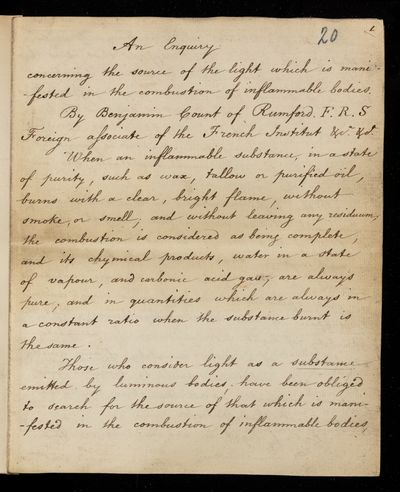 20
1
An Enquiry
concerning the source of the light which is mani-
-fested in the combustion of inflammable bodies.
By Benjamin Count of Rumford. F. R. S
Foreign associate of the French Institut &c. &c.
When an inflammable substance, in a state
of purity, such as wax, tallow or purified oil,
burns with a clear, bright flame, without
smoke, or smell, and without leaving any residuum,
the combustion is considered as being complete,
and its chymical products, water in a state
of vapour, and carbonic acid gas, are always
pure, and in quantities which are always in
a constant ratio when the substance burnt is
the same.
Those who consider light as a substance
emitted by luminous bodies, have been obliged
to search for the source of that which is mani-
-fested in the combustion of inflammable bodies,